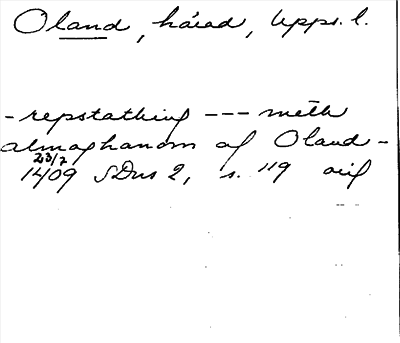 Oland, härad, Upps. l.
- repstathing --- mæth
almoghanom af Oland -
23/2
1409 SDns 2, s. 119 orig